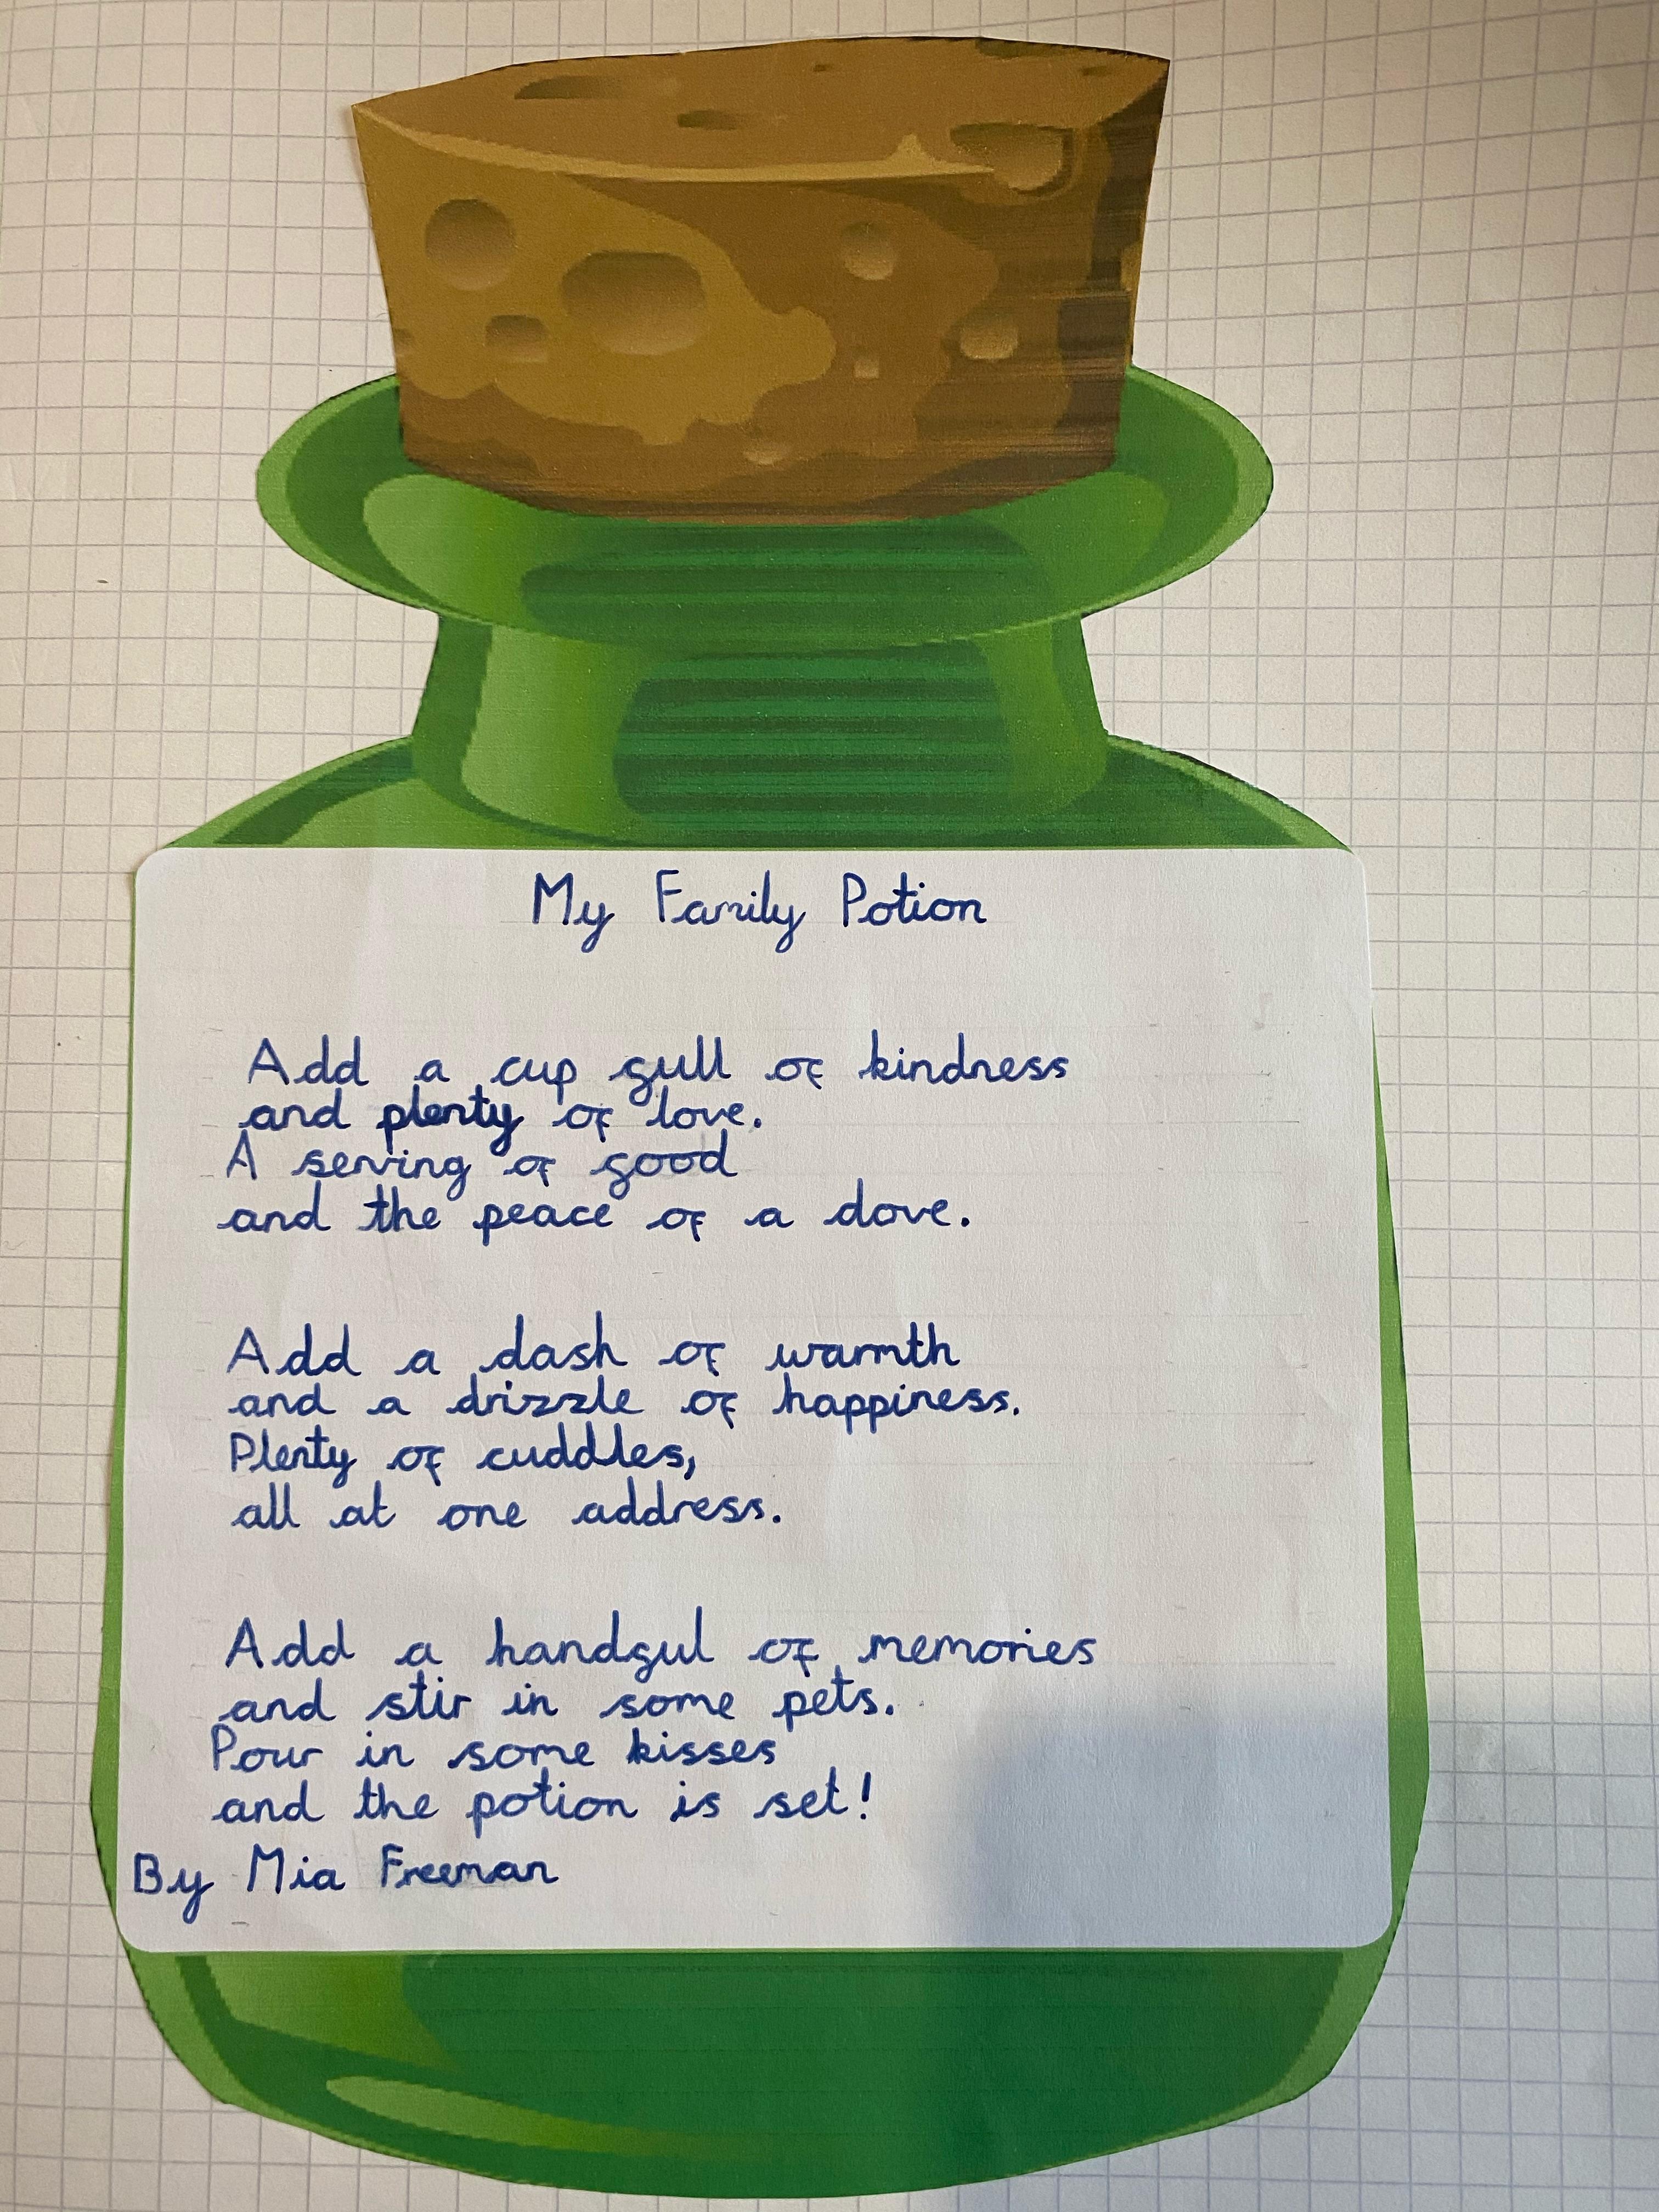 My Family Potion
Add a cup full of kindness
and plenty of love.
A serving of good
and the peace of a dove.
Add a dash of warmth
and a drizzle of happiness.
Plenty of cuddles,
all at one address.
Add a handful of memories
and stir in some pets.
Pour in some kisses
and the potion is set!
By Mia Freeman